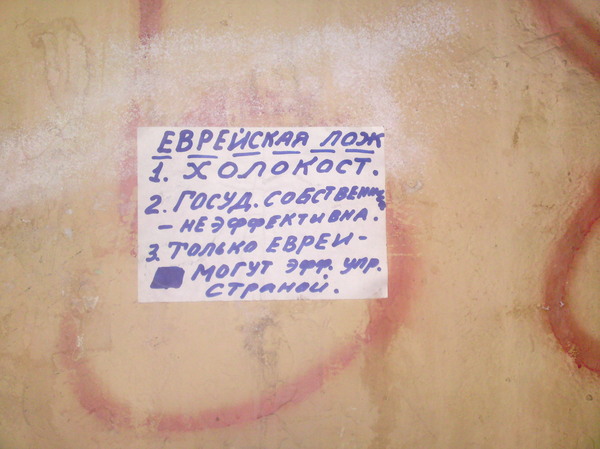 ЕВРЕЙСКАЯ ЛОЖ
1. ХОЛОКОСТ.
2. ГОСУД. СОБСТВЕНН
- НЕЭФФЕКТИВНА.
3. ТОЛЬКО ЕВРЕИ -
МОГУТ ЭФФ. УПР.
СТРАНОЙ.